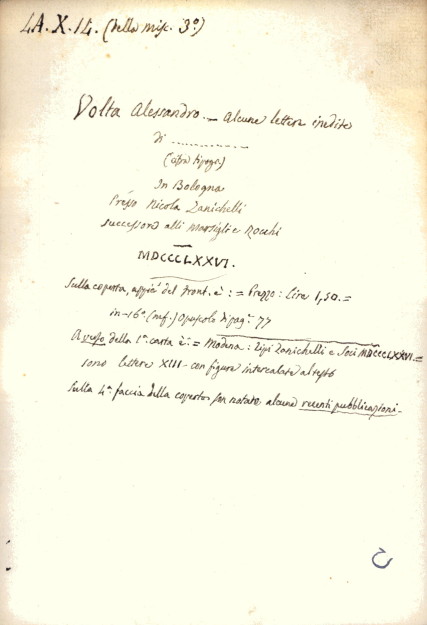 LA.X.14. (della misc. 3ª)
Volta Alessandro. — Alcune lettere inedite
di ..............
(cifra tipogr.)
In Bologna
Presso Nicola Zanichelli
successore alli Marsigli e Rocchi
MDCCCLXXVI.
Sulla coperta, appiè del front. è: = Prezzo: Lire 1,50. =
in-16° (mf.) Opuscolo di pag. 77
A verso della 1ª carta è: = Modena: Tipi Zanichelli e Soci MDCCCLXXVI. =
sono lettere XIII - con figure intercalate al testo
Sulla 4ª faccia della coperta son notate alcune recenti pubblicazioni -